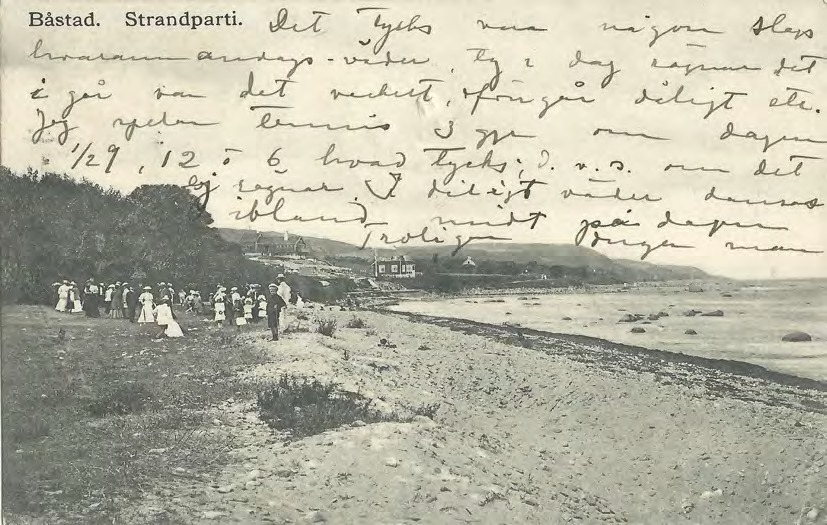 Båstad. Strandparti.
Det tycks vara någon slags
hvarannandags-väder, ty i dag regnar det
i går var det vackert, förrgår dåligt etc.
Jag spelar tennis 3 ggr om dagen
1/2 9, 12 o 6 hvad tycks; d. v. s. om det
ej regnar. I dåligt väder dansas
ibland midt på dagen
Troligen ingen man